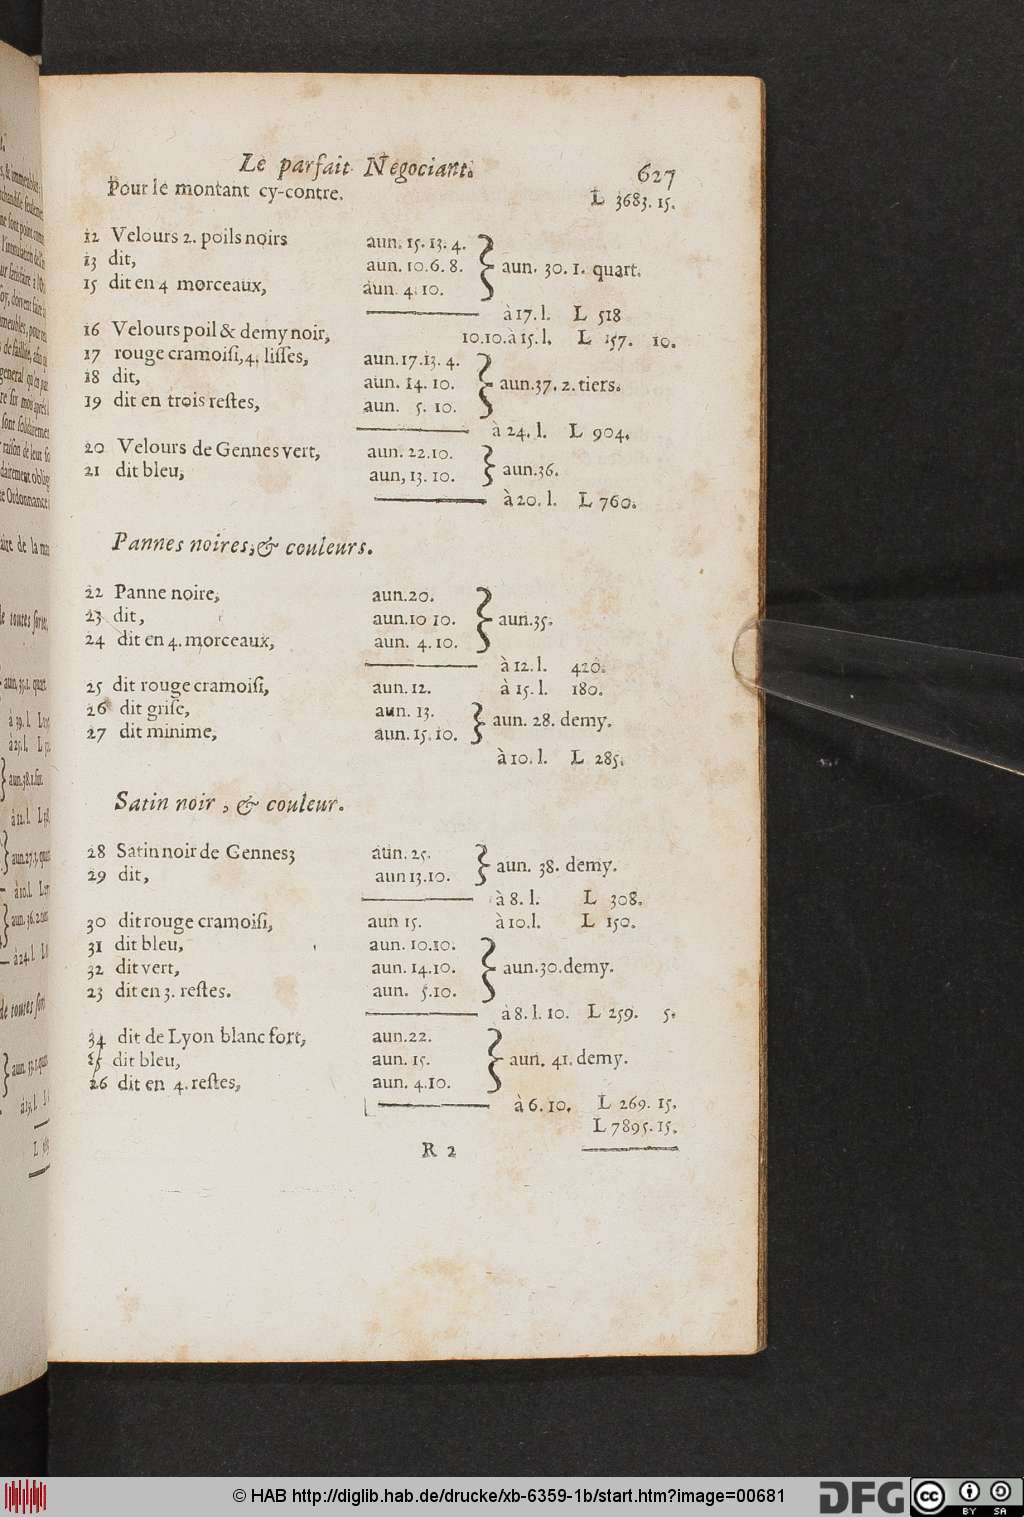 Le parfait Negociant. 627
Pour le montant cy-contre. L 3683. 15.
12 Velours 2. poils noirs aun. 15. 13. 4.
13 dit, aun. 10. 6. 8. } aun. 30. 1. quart.
15 dit en 4 morceaux, aun. 4. 10.
à 17. l. L 518
16 Velours poil & demy noir, 10. 10. à 15. l. L 157. 10.
17 rouge cramoisi, 4. lisses, aun. 17. 13. 4.
18 dit, aun. 14. 10. } aun. 37. 2. tiers.
19 dit en trois restes, aun. 5. 10.
à 24. l. L 904.
20 Velours de Gennes vert, aun. 22. 10.
21 dit bleu, aun, 13. 10. } aun. 36.
à 20. l. L 760.
Pannes noires, & couleurs.
22 Panne noire, aun. 20.
23 dit, aun. 10 10. } aun. 35.
24 dit en 4. morceaux, aun. 4. 10.
à 12. l. 420.
25 dit rouge cramoisi, aun. 12. à 15. l. 180.
26 dit grise, aun. 13. } aun. 28. demy.
27 dit minime, aun. 15. 10.
à 10. l. L 285.
Satin noir, & couleur.
28 Satin noir de Gennes; aun. 25. } aun. 38. demy.
29 dit, aun 13. 10.
à 8. l. L 308.
30 dit rouge cramoisi, aun 15. à 10. l. L 150.
31 dit bleu, aun. 10. 10.
32 dit vert, aun. 14. 10. } aun. 30. demy.
23 dit en 3. restes. aun. 5. 10.
à 8. l. 10. L 259. 5.
34 dit de Lyon blanc fort, aun. 22.
25 dit bleu, aun. 15. } aun. 41. demy.
26 dit en 4. restes, aun. 4. 10.
à 6. 10. L 269. 15.
L 7895. 15.
R 2
© HAB http://diglib.hab.de/drucke/xb-6359-1b/start.htm?image=00681
DFG cc BY SA